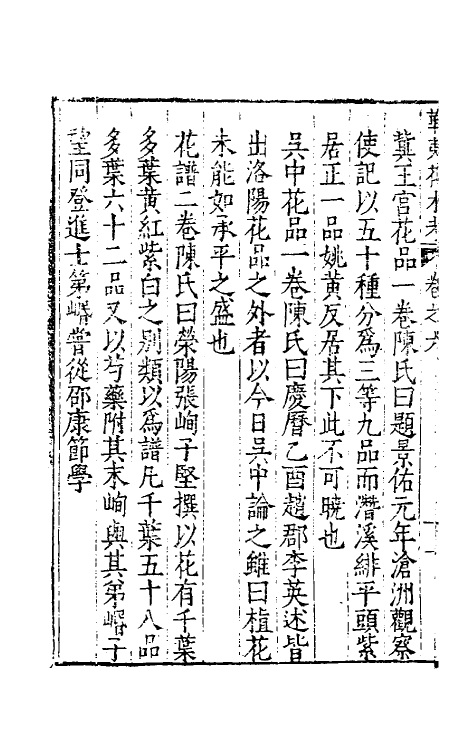 花木考 卷之六
冀王宫花品一卷陳氏曰題景佑元年滄洲觀察
使記以五十種分爲三等九品而潛溪緋平頭紫
居正一品姚黄反居其下此不可曉也
吴中花品一卷陳氏曰慶曆乙酉趙郡李英述皆
出洛陽花品之外者以今日吴中論之雖曰植花
未能如承平之盛也
花譜二卷陳氏曰榮陽張峋子堅撰以花有千葉
多葉黄紅紫白之别類以爲譜凡千葉五十八品
多葉六十二品又以芍藥附其末峋與其弟㟭子
望同登進士第㟭嘗從邵康節學